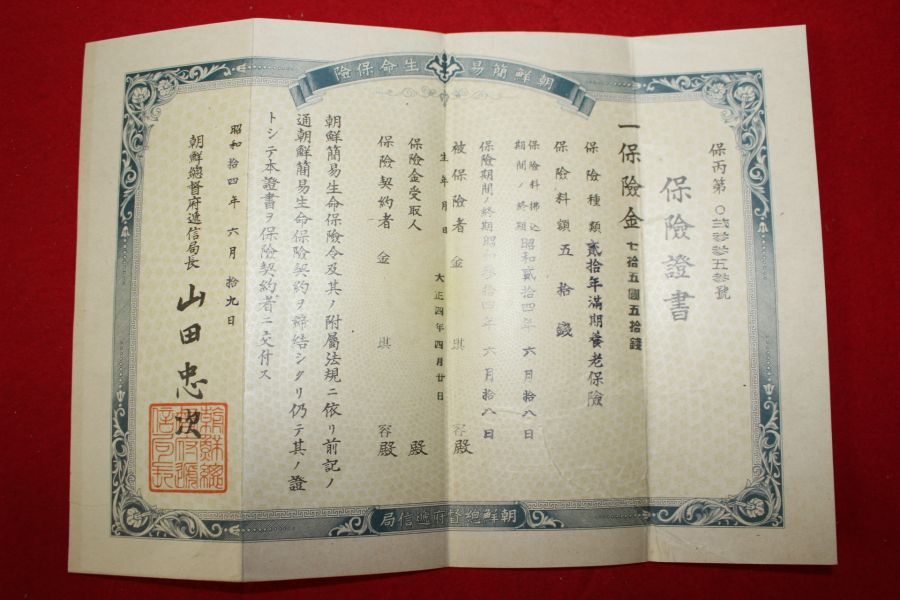 險保命生易簡鮮朝
保丙第〇弐参参五参號
保險證書
一保險金 七拾五圓五拾錢
保險種類 貳拾年滿期養老保險
保險料額 五拾錢
保險料拂込期間ノ終期 昭和貳拾四年六月拾八日
保險期間ノ終期 昭和参拾四年六月拾八日
被保險者 金琪容殿
生年月日 大正四年四月廿日
保險金受取人 殿
保險契約者 金琪容殿
朝鮮簡易生命保險令及其ノ附屬法規ニ依リ前記ノ
通朝鮮簡易生命保險契約ヲ締結シタリ仍テ其ノ證
トシテ本證書ヲ保險契約者ニ交付ス
昭和拾四年六月拾九日
朝鮮總督府遞信局長 山田忠次
局信遞府督總鮮朝